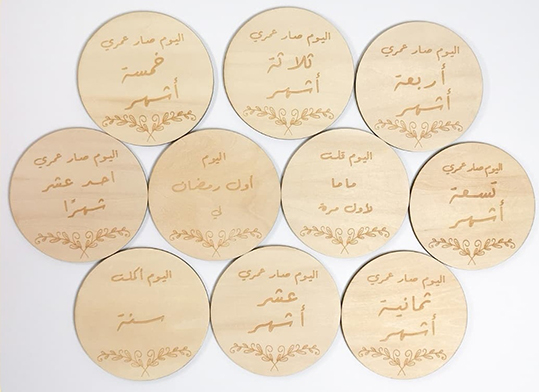 اليوم صار عمري
خمسة
أشهر
اليوم صار عمري
ثلاثة
أشهر
اليوم صار عمري
أربعة
أشهر
اليوم صار عمري
احد عشر
شهرًا
اليوم
أول رمضان
لي
اليوم قلت
ماما
لأول مرة
اليوم صار عمري
تسعة
أشهر
اليوم اكملت
سنة
اليوم صار عمري
عشر
أشهر
اليوم صار عمري
ثمانية
أشهر